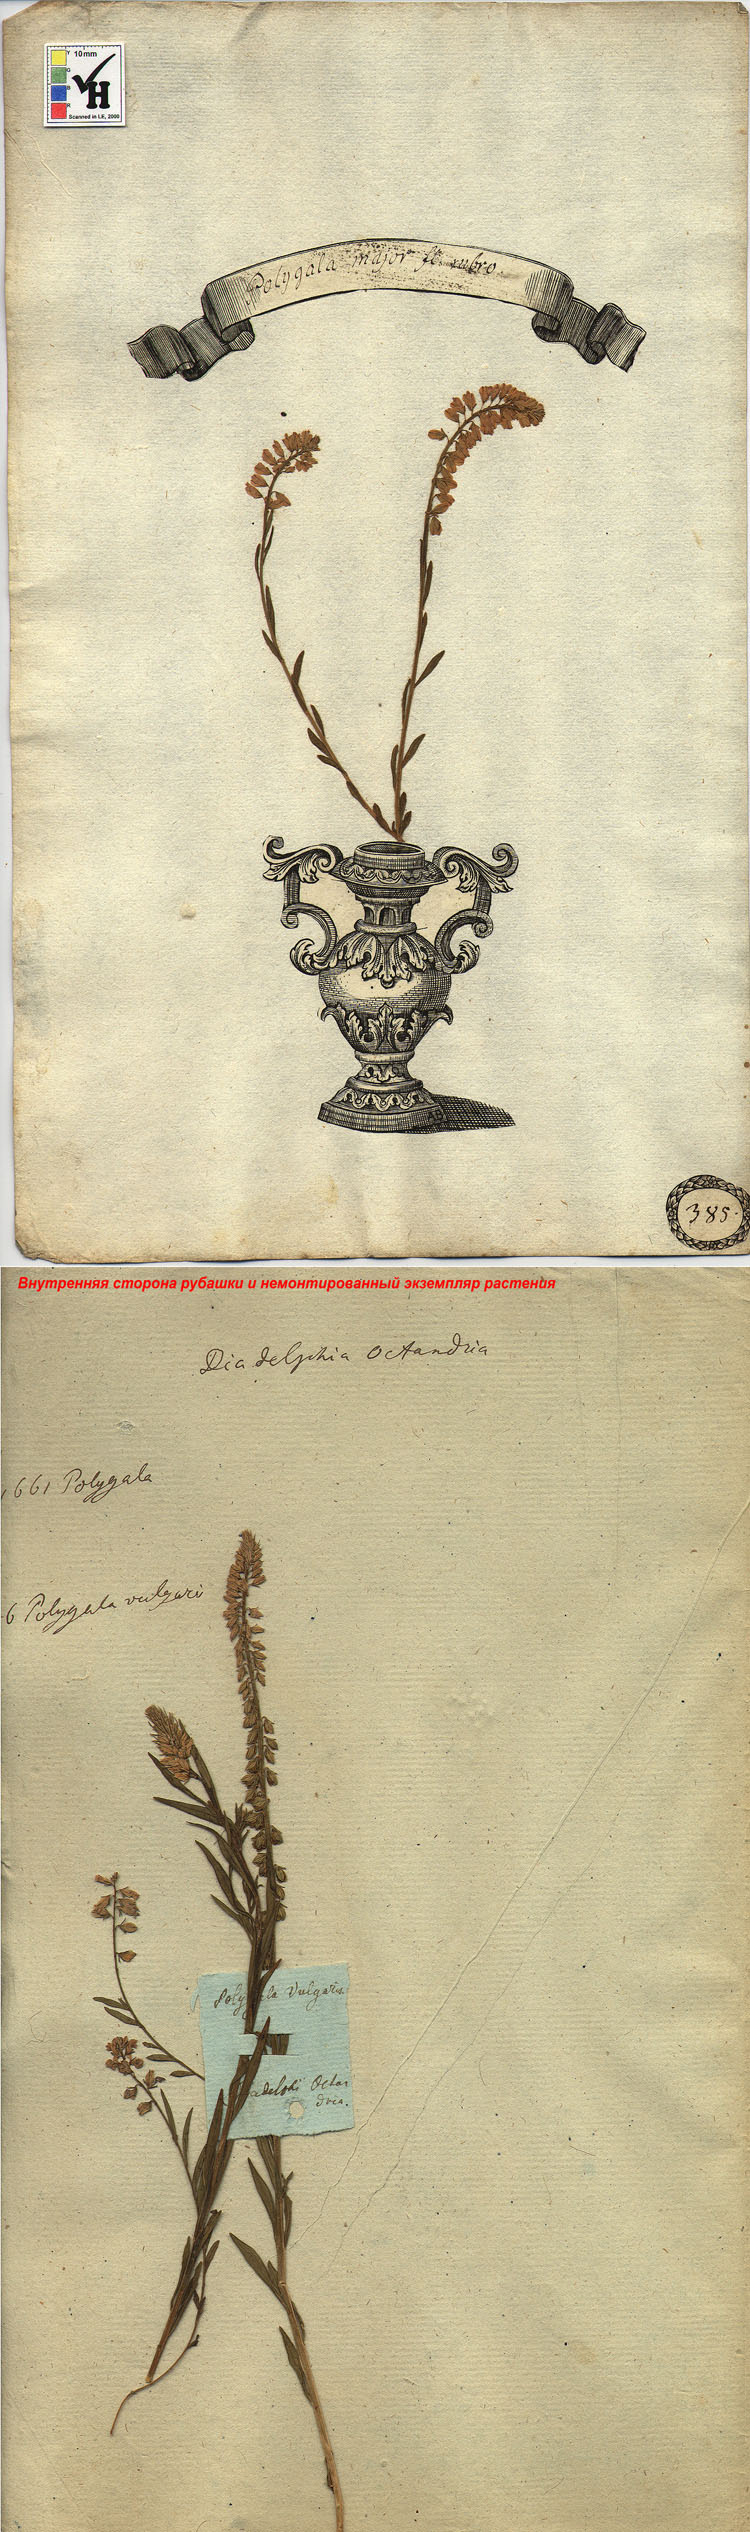 10mm
Y
G
B
R
H
Scanned in LE, 2000
Polygala major fl. rubro.
AB
385.
Внутренняя сторона рубашки и немонтированный экземпляр растения
Diadelphia Octandria
1661 Polygala
6 Polygala vulgaris
Vulgaris
Octan
dria.